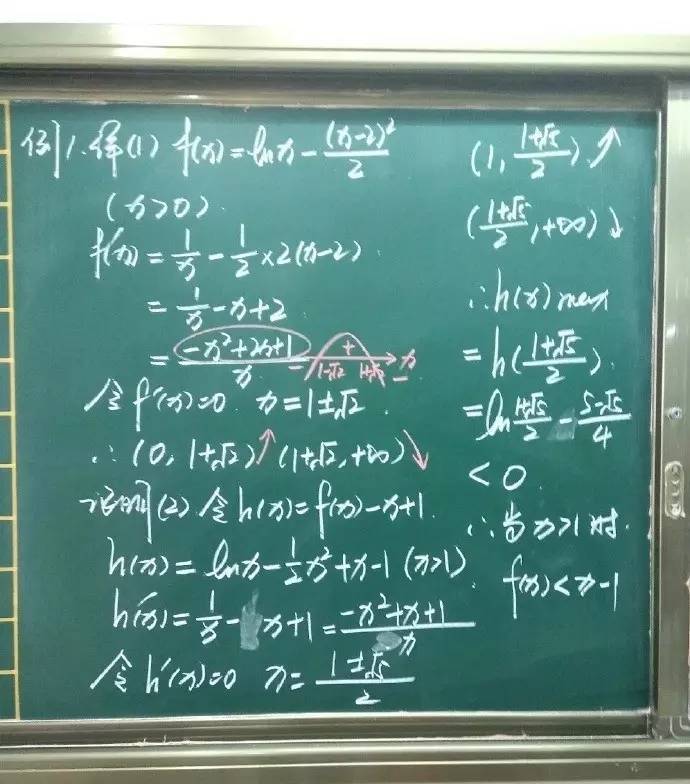 例1.解(1) f(x)=lnx-(x-2)²/2
(x>0).
f'(x)=1/x-1/2×2(x-2).
=1/x-x+2
=(-x²+2x+1)/x
- + -
1-√2 1+√2 x
令f'(x)=0 x=1±√2
∴(0,1+√2)↗(1+√2,+∞)↘
证明(2)令h(x)=f(x)-x+1.
h(x)=lnx-1/2x²+x-1(x>1)
h'(x)=1/x-x+1=(-x²+x+1)/x
令h'(x)=0 x=(1±√5)/2
(1,(1+√5)/2)↗
((1+√5)/2,+∞)↘
∴h(x)max
=h((1+√5)/2).
=ln(1+√5)/2-(5-√5)/4
<0
∴当x>1时.
f(x)<x-1